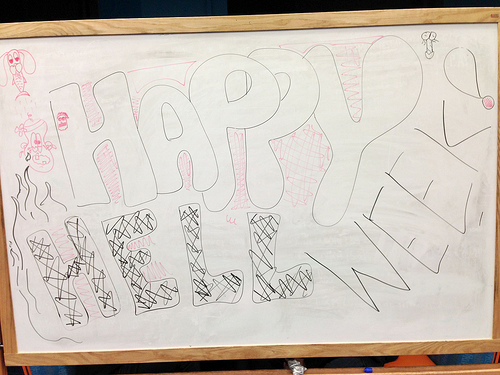 HAPPY
HELL WEEK!